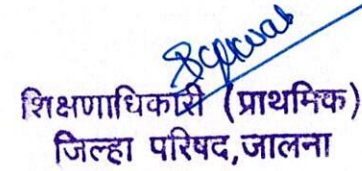 शिक्षणाधिकारी (प्राथमिक)
जिल्हा परिषद,जालना